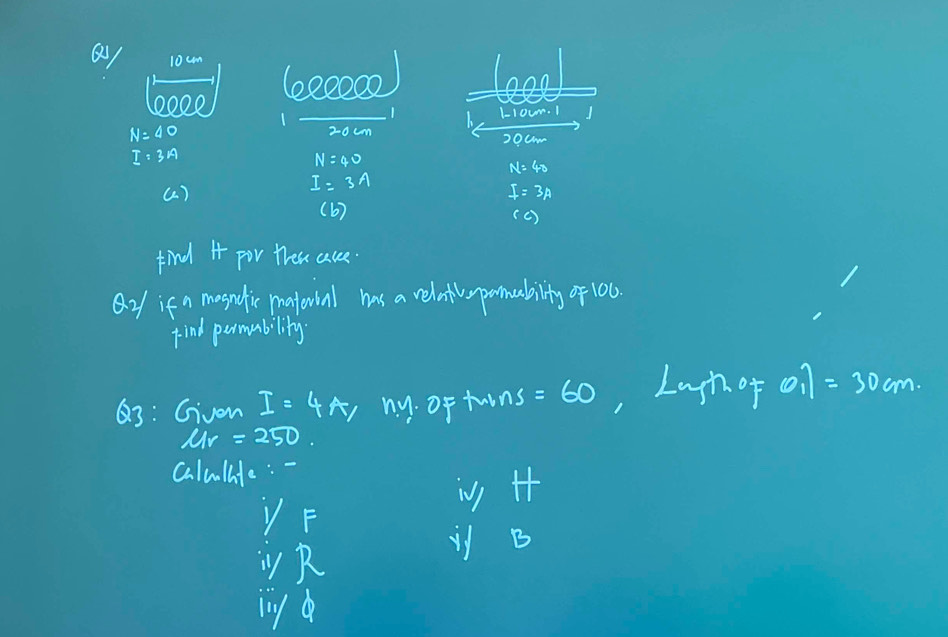 Q1/
10 cm
N=40
I=3A
(a)
20 cm
N=40
I= 3A
(b)
10cm.
20cm
N= 40
I= 3A
(c)
find H for these case.
Q2/ if a magnetic material has a relative permeability of 100.
find permability.
Q3: Given I = 4A, of turns = 60, Length of = 30cm.
μr = 250.
Calculate :-
i/ F
ii/ R
iii/ ϕ
iv/ H
v/ B